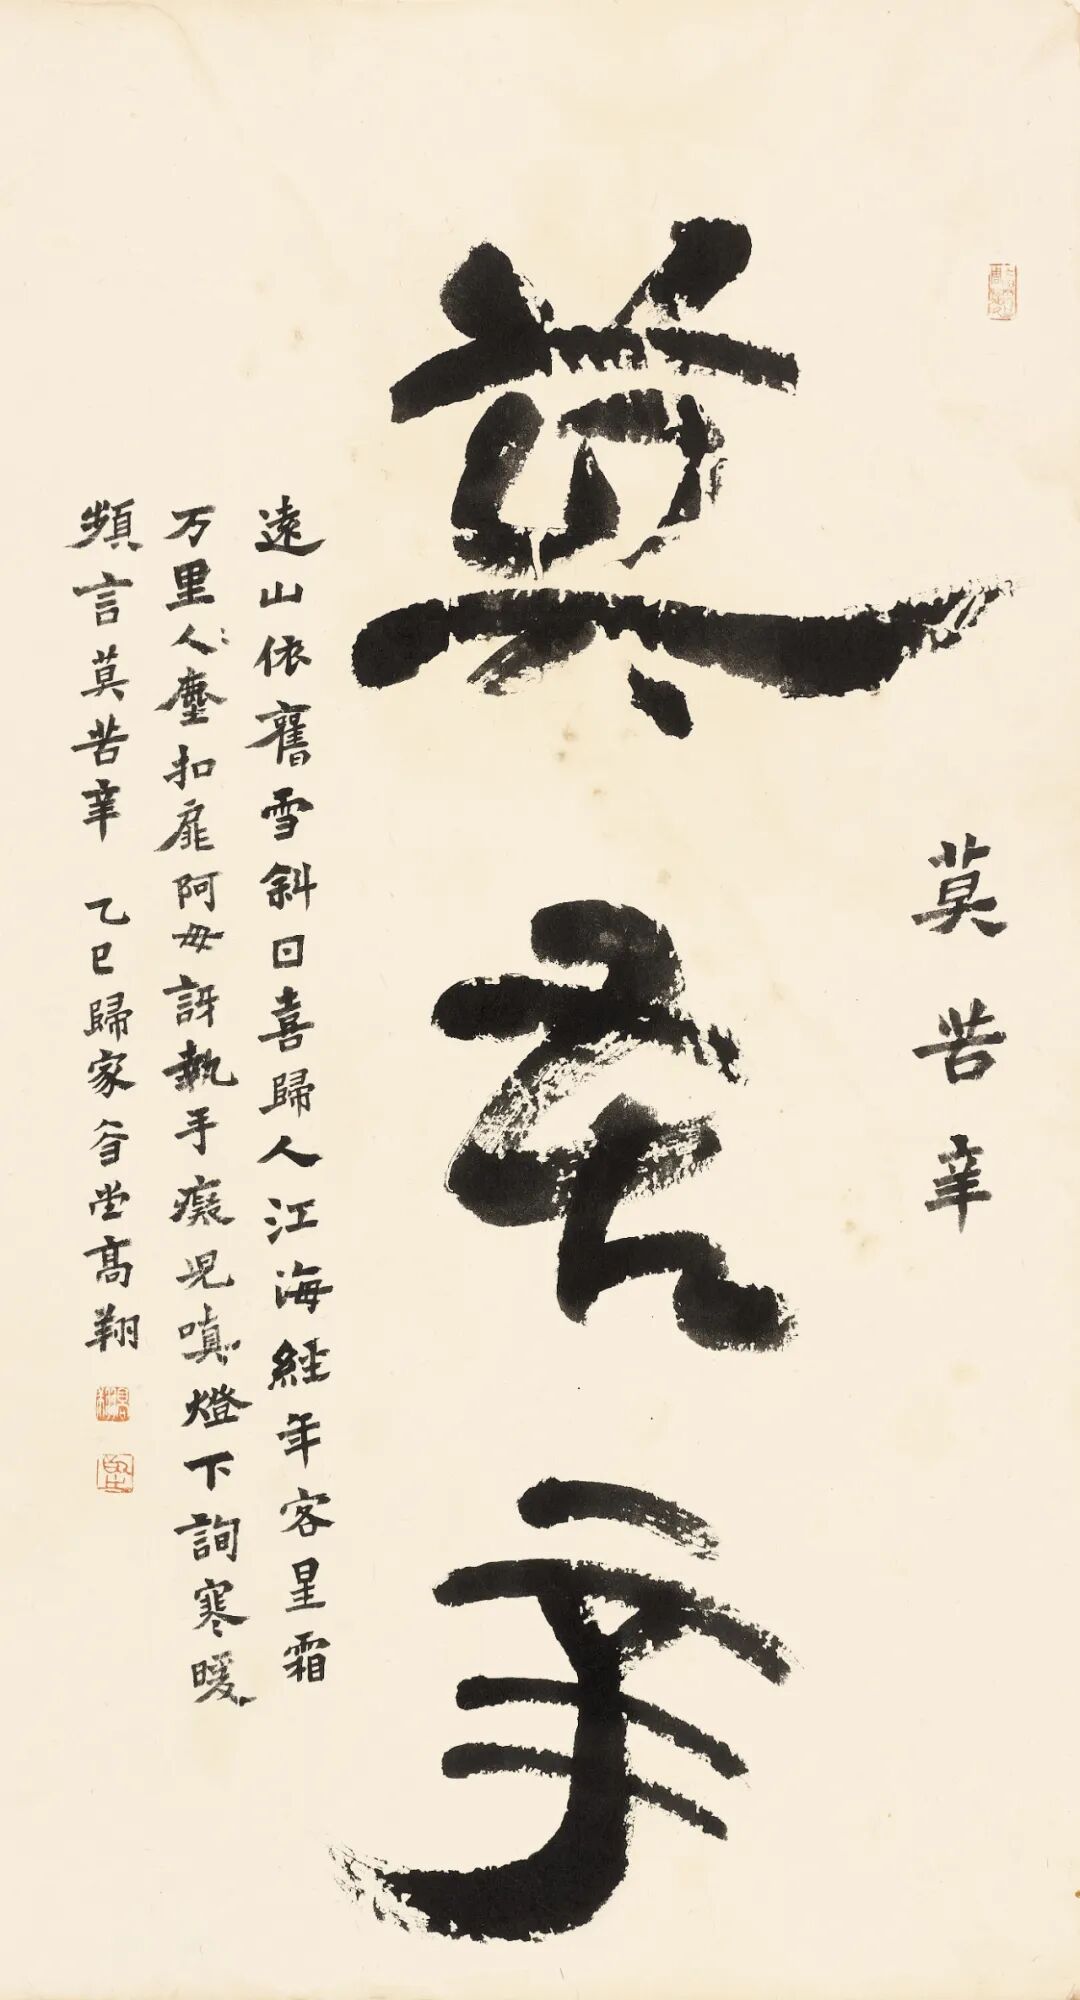 莫苦辛
莫苦辛
遠山依舊雪斜日喜歸人江海經年客星霜
万里人塵扣扉阿母訝執手癡児嗔燈下詢寒暖
頻言莫苦辛 乙巳歸家堂高翔